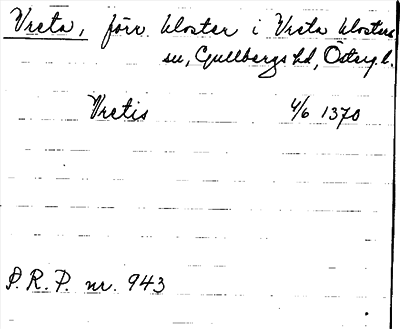 Vreta, förr. kloster i Vreta klosters
sn, Gullbergs hd, Östergl.
Vretis 4/6 1370
P.R.P. nr. 943